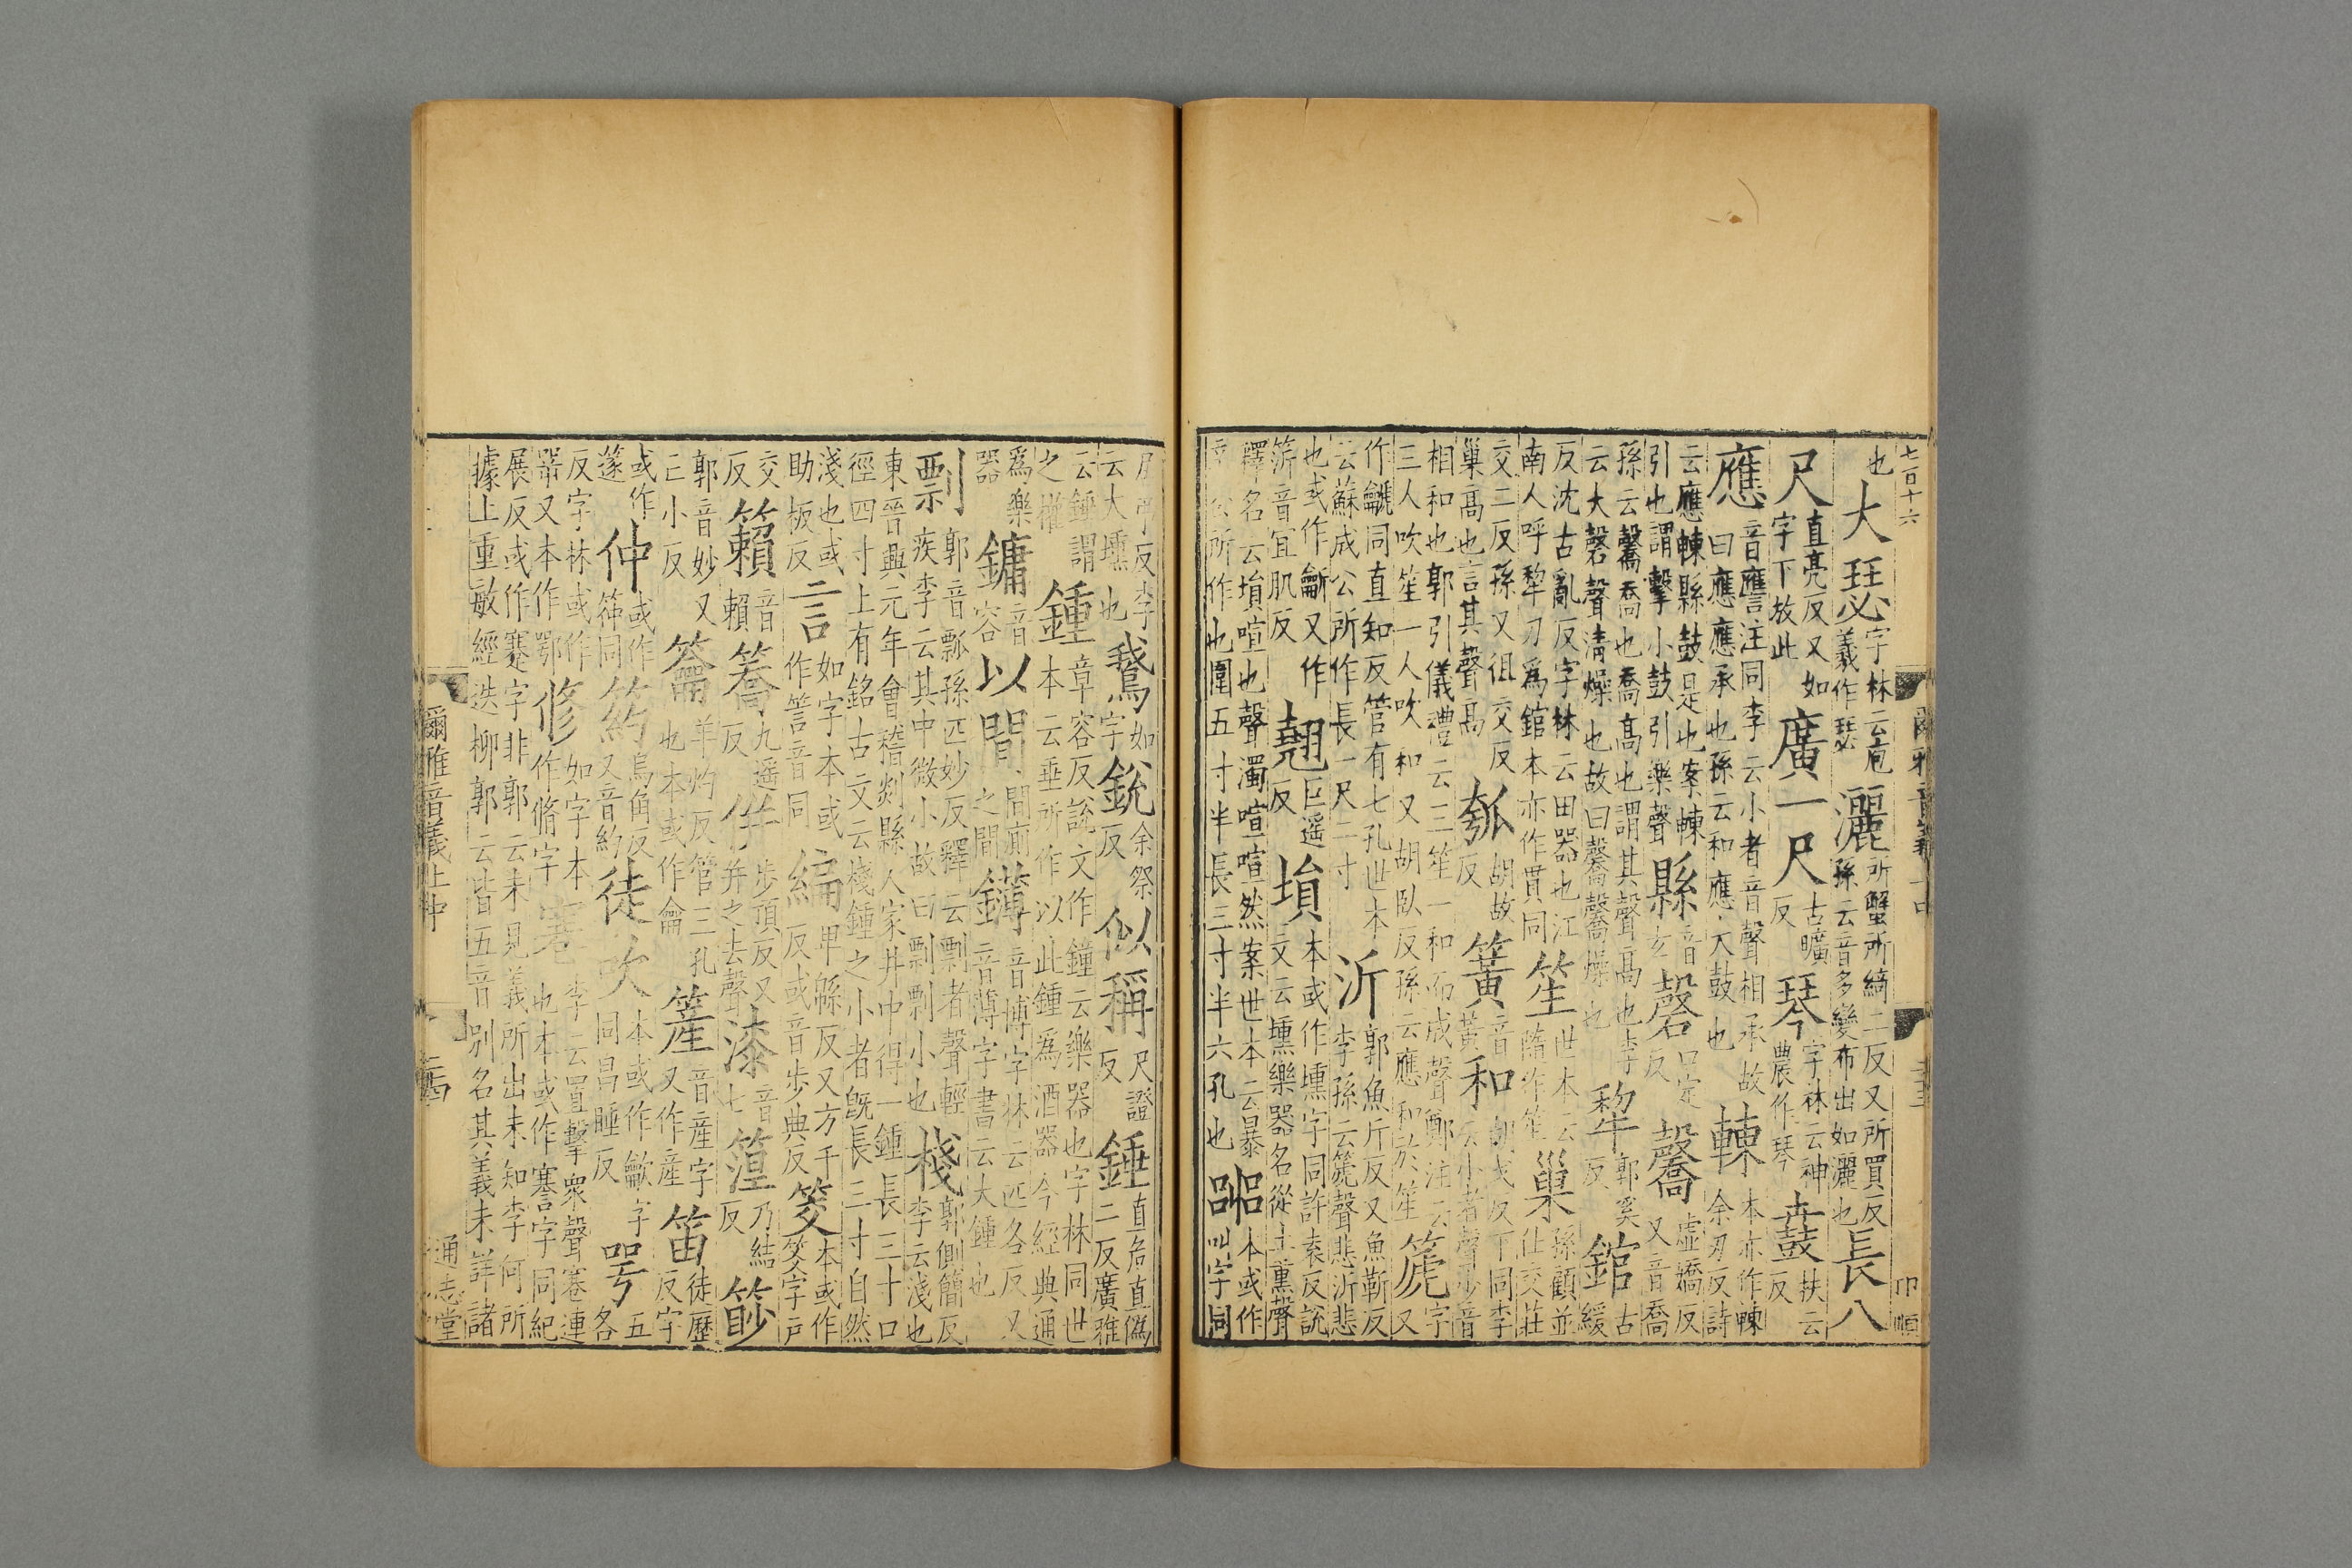 七百十六
也大瑟字林云庖羲作瑟灑所蟹所綺二反又所買反孫云音多變布出如灑也長八
尺直亮反又如字下放此廣一尺古曠反琴字林云神農作琴鼖扶云反
應音膺注同李云小者音聲相承故曰應應承也孫云和應大鼓也朄本亦作朄余刃反詩
云應朄縣鼓是也案朄引也謂擊小鼓引樂聲縣音玄磬口定反毊虛嬌反又音喬
孫云毊喬也喬高也謂其聲高也李云大磬聲清燥也故曰毊毊燥也犂郭奚反錧古緩
反沈古亂反字林云田器也江南人呼犂刀爲錧本亦作貫同笙世本云隨作笙巢孫顧並仕交莊
交二反孫又徂交反巢高也言其聲高瓠胡故反簧音黃和胡戈反下同李云小者聲少音
相和也郭引儀禮云三笙一和而成聲鄭注云三人吹笙一人吹和又胡臥反孫云應和於笙篪字又
作䶵同直知反管有七孔世本云蘇成公所作長一尺二寸沂郭魚斤反又魚靳反李孫云篪聲悲沂悲
也或作又作䇢音宜肌反翹巨遥反塤本或作壎字同許袁反說文云壎樂器名從土熏聲
釋名云塤喧也聲濁喧喧然案世本云暴辛公所作也圍五寸半長三寸半六孔也嘂本或作叫字同
爾雅音義上中
居弔反李云大壎也鵝如字銳余祭反似稱尺證反錘直危直僞二反廣雅
云錘謂之權鍾章容反說文作鐘云樂器也字林同世本云垂所作以此鍾爲酒器今經典通
爲樂器鏞音容以間間廁之間鎛音博字林云匹各反又音薄字書云大鍾也
剽郭音瓢孫匹妙反釋云剽者聲輕疾李云其中微小故曰剽剽小也棧郭側簡反李云淺也
東晉興元年會稽剡縣人家井中得一鍾長三寸口徑四寸上有銘古文云棧鍾之小者既長三寸自然
淺也或助板反言如字本或作䇾音同編甲緜反又方千反或音步典反筊本或作字戶
交反籟音賴簥九遥反併步頂反又并之去聲漆音七篞乃結反篎
郭音妙又亡小反籥羊灼反管三孔也本或作龠簅音産字又作産笛徒歷反字
或作篴仲或作筗同箹烏角反又音約徒吹本或作龡字同昌睡反咢五各
反字林或作㗁又本作鄂修如字本作脩字寋李云置擊衆聲寋連也本或作謇字同紀
展反或作蹇字非郭云未見義所出未知李何所據上重敏經迭柳郭云皆五音別名其義未詳諸
爾雅音義上中
通志堂